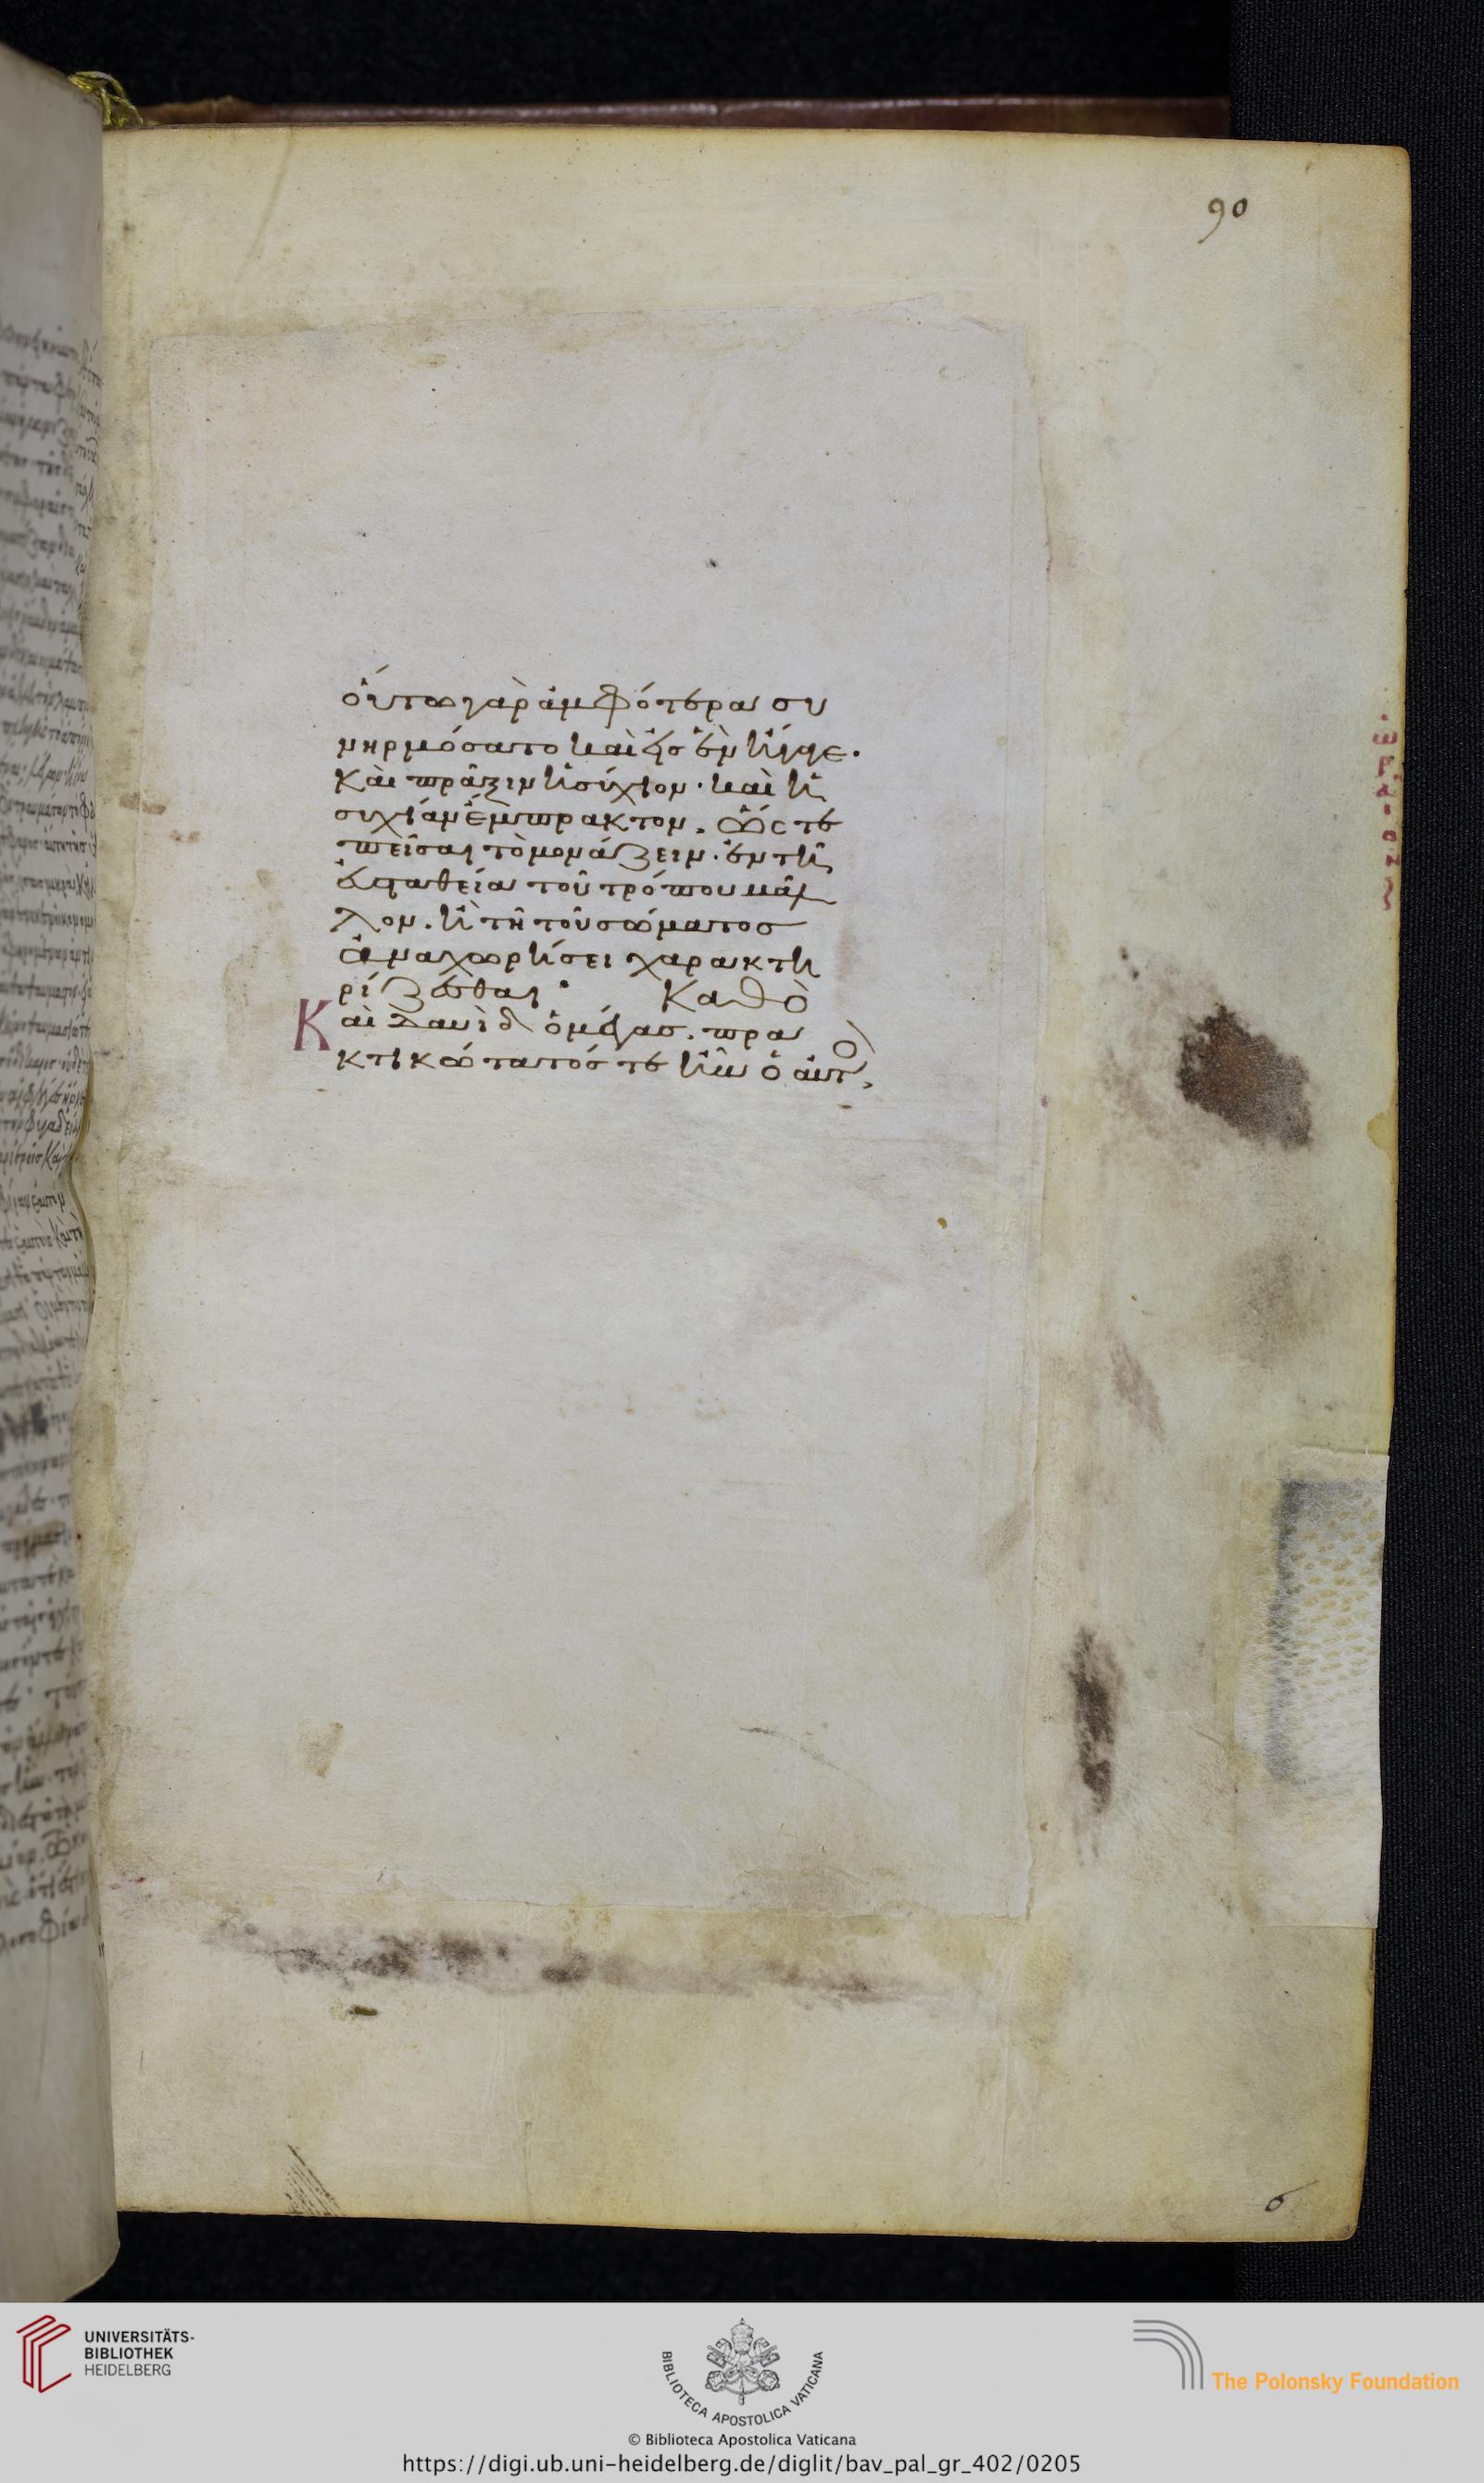 90
οὕτω γὰρ ἀμφότερα συ
νηρμόσατο καὶ εἰς ἓν ἦγε.
Καὶ πρᾶξιν ἡσύχιον· καὶ ἡ
συχίαν ἔμπρακτον. ὥστε
πεῖσαι τὸ μονάζειν. ἐν τῆ
εὐσταθεία τοῦ τρόπου μᾶλ
λον. ἢ τῆ τοῦ σώματος
ἀναχωρήσει χαρακτη
ρίζεσθαι· Καθὸ
Καὶ Δαυὶδ ὁ μέγας. πρα
κτικώτατός τε ἦν ὁ αὐτ(ὸ)
6
UNIVERSITÄTS-
BIBLIOTHEK
HEIDELBERG
BIBLIOTECA APOSTOLICA VATICANA
The Polonsky Foundation
© Biblioteca Apostolica Vaticana
https://digi.ub.uni-heidelberg.de/diglit/bav_pal_gr_402/0205